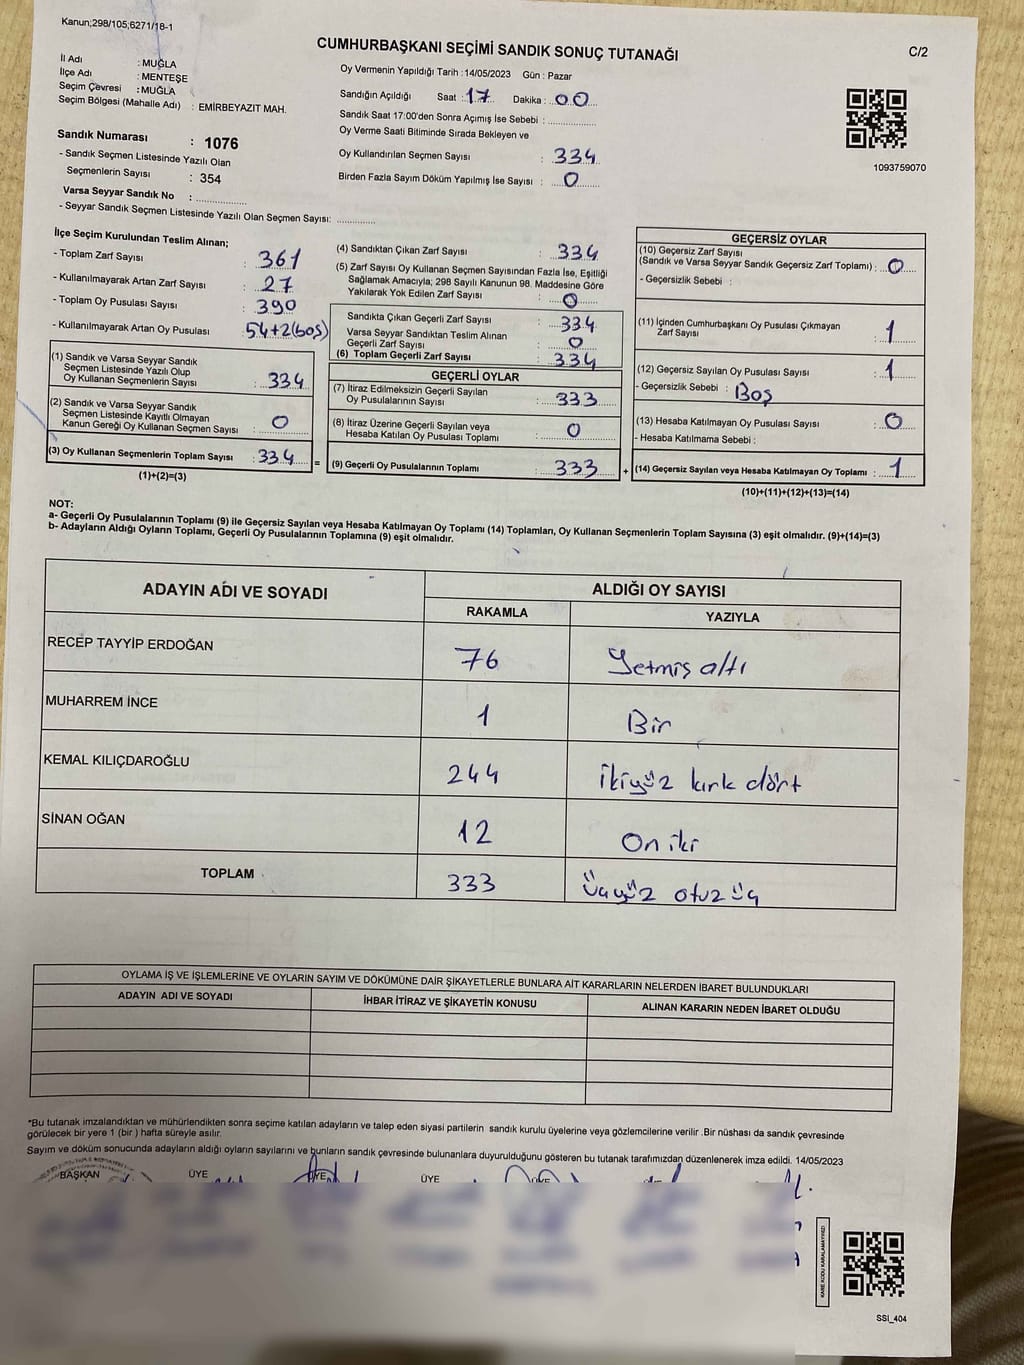 Kanun;298/105;6271/18-1
CUMHURBAŞKANI SEÇİMİ SANDIK SONUÇ TUTANAĞI
C/2
İl Adı : MUĞLA
İlçe Adı : MENTEŞE
Seçim Çevresi : MUĞLA
Seçim Bölgesi (Mahalle Adı) : EMİRBEYAZIT MAH.
Sandık Numarası : 1076
- Sandık Seçmen Listesinde Yazılı Olan
Seçmenlerin Sayısı : 354
Varsa Seyyar Sandık No :
- Seyyar Sandık Seçmen Listesinde Yazılı Olan Seçmen Sayısı:
Oy Vermenin Yapıldığı Tarih :14/05/2023 Gün : Pazar
Sandığın Açıldığı Saat : 17 Dakika : 00
Sandık Saat 17:00'den Sonra Açımış İse Sebebi :
Oy Verme Saati Bitiminde Sırada Bekleyen ve
Oy Kullandırılan Seçmen Sayısı : 334
Birden Fazla Sayım Döküm Yapılmış İse Sayısı : 0
1093759070
İlçe Seçim Kurulundan Teslim Alınan;
- Toplam Zarf Sayısı : 361
- Kullanılmayarak Artan Zarf Sayısı : 27
- Toplam Oy Pusulası Sayısı : 390
- Kullanılmayarak Artan Oy Pusulası 54+2(boş)
(1) Sandık ve Varsa Seyyar Sandık
Seçmen Listesinde Yazılı Olup
Oy Kullanan Seçmenlerin Sayısı : 334
(2) Sandık ve Varsa Seyyar Sandık
Seçmen Listesinde Kayıtlı Olmayan
Kanun Gereği Oy Kullanan Seçmen Sayısı : 0
(3) Oy Kullanan Seçmenlerin Toplam Sayısı : 334
(1)+(2)=(3)
(4) Sandıktan Çıkan Zarf Sayısı : 334
(5) Zarf Sayısı Oy Kullanan Seçmen Sayısından Fazla İse, Eşitliği
Sağlamak Amacıyla; 298 Sayılı Kanunun 98. Maddesine Göre
Yakılarak Yok Edilen Zarf Sayısı : 0
Sandıkta Çıkan Geçerli Zarf Sayısı : 334
Varsa Seyyar Sandıktan Teslim Alınan
Geçerli Zarf Sayısı : 0
(6) Toplam Geçerli Zarf Sayısı : 334
GEÇERLİ OYLAR
(7) İtiraz Edilmeksizin Geçerli Sayılan
Oy Pusulalarının Sayısı : 333
(8) İtiraz Üzerine Geçerli Sayılan veya
Hesaba Katılan Oy Pusulası Toplamı : 0
= (9) Geçerli Oy Pusulalarının Toplamı : 333
GEÇERSİZ OYLAR
(10) Geçersiz Zarf Sayısı
(Sandık ve Varsa Seyyar Sandık Geçersiz Zarf Toplamı) : 0
- Geçersizlik Sebebi :
(11) İçinden Cumhurbaşkanı Oy Pusulası Çıkmayan
Zarf Sayısı : 1
(12) Geçersiz Sayılan Oy Pusulası Sayısı : 1
- Geçersizlik Sebebi : Boş
(13) Hesaba Katılmayan Oy Pusulası Sayısı : 0
- Hesaba Katılmama Sebebi :
+ (14) Geçersiz Sayılan veya Hesaba Katılmayan Oy Toplamı : 1
(10)+(11)+(12)+(13)=(14)
NOT:
a- Geçerli Oy Pusulalarının Toplamı (9) ile Geçersiz Sayılan veya Hesaba Katılmayan Oy Toplamı (14) Toplamları, Oy Kullanan Seçmenlerin Toplam Sayısına (3) eşit olmalıdır. (9)+(14)=(3)
b- Adayların Aldığı Oyların Toplamı, Geçerli Oy Pusulalarının Toplamına (9) eşit olmalıdır.
ADAYIN ADI VE SOYADI ALDIĞI OY SAYISI
RAKAMLA YAZIYLA
RECEP TAYYİP ERDOĞAN 76 Yetmiş altı
MUHARREM İNCE 1 Bir
KEMAL KILIÇDAROĞLU 244 İkiyüz kırk dört
SİNAN OĞAN 12 On iki
TOPLAM 333 üçyüz otuz üç
OYLAMA İŞ VE İŞLEMLERİNE VE OYLARIN SAYIM VE DÖKÜMÜNE DAİR ŞİKAYETLERLE BUNLARA AİT KARARLARIN NELERDEN İBARET BULUNDUKLARI
ADAYIN ADI VE SOYADI İHBAR İTİRAZ VE ŞİKAYETİN KONUSU ALINAN KARARIN NEDEN İBARET OLDUĞU
*Bu tutanak imzalandıktan ve mühürlendikten sonra seçime katılan adayların ve talep eden siyasi partilerin sandık kurulu üyelerine veya gözlemcilerine verilir .Bir nüshası da sandık çevresinde
görülecek bir yere 1 (bir ) hafta süreyle asılır.
Sayım ve döküm sonucunda adayların aldığı oyların sayılarını ve bunların sandık çevresinde bulunanlara duyurulduğunu gösteren bu tutanak tarafımızdan düzenlenerek imza edildi. 14/05/2023
BAŞKAN ÜYE ÜYE ÜYE
KARE KODU KARALAMAYINIZ!
SSİ_404